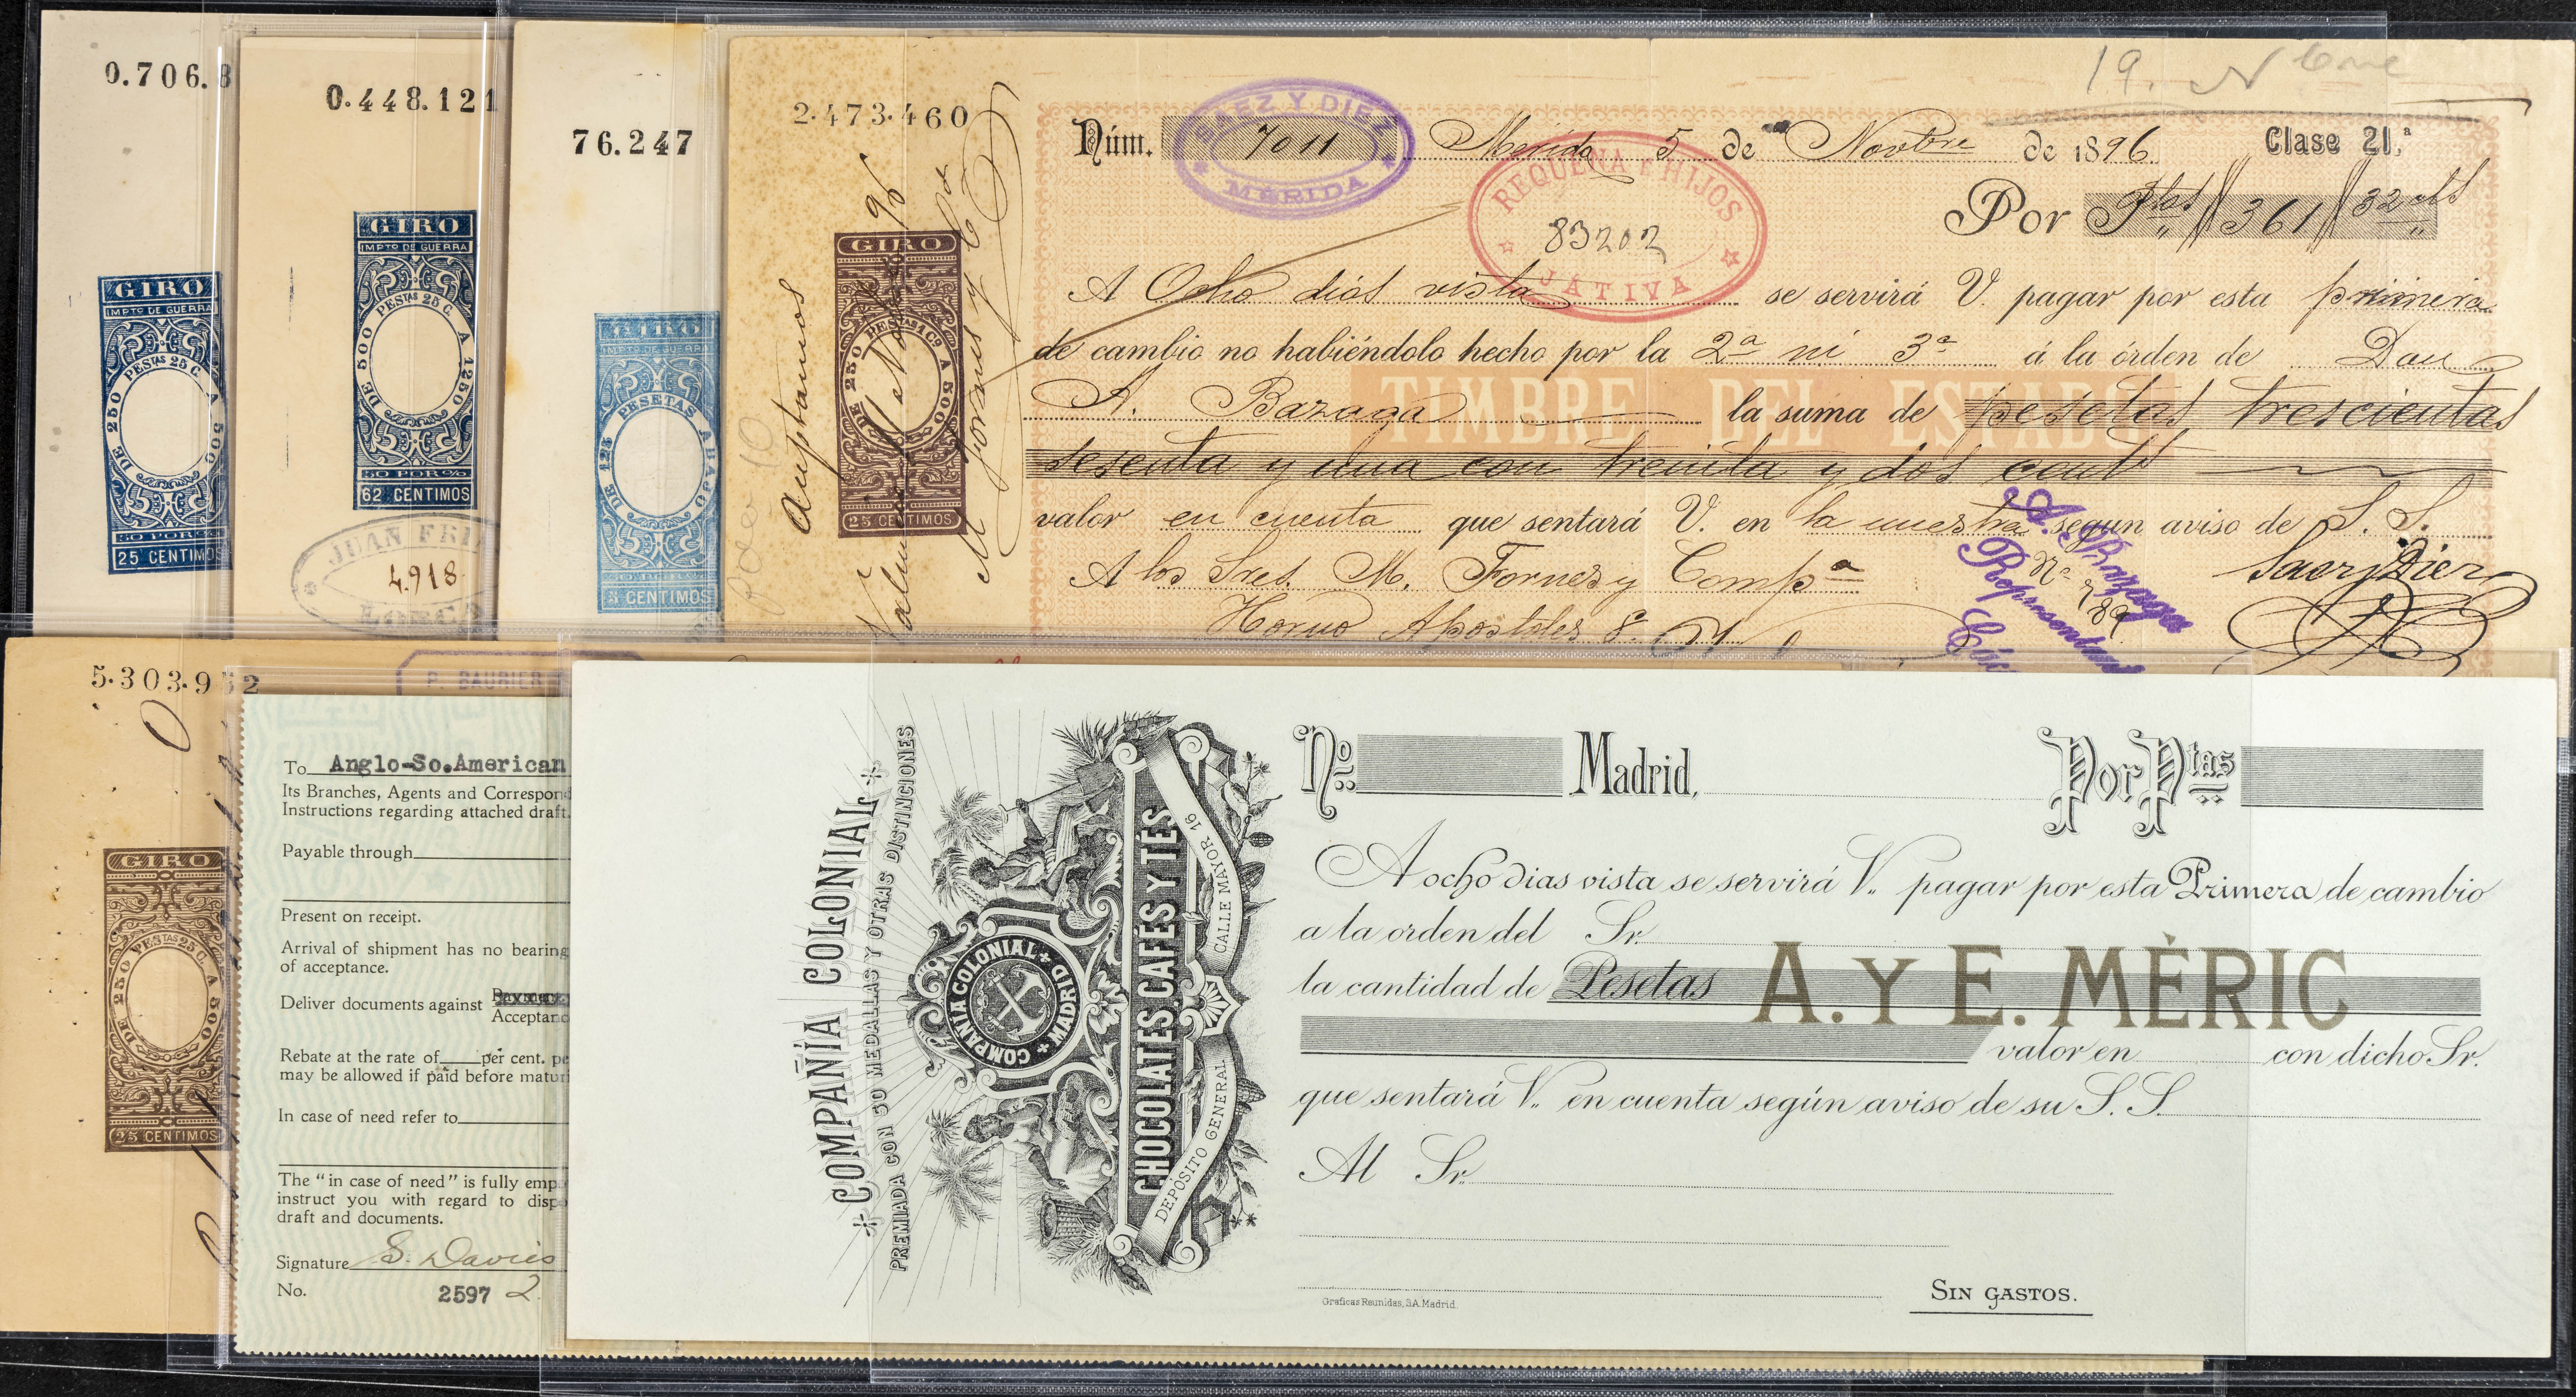 0.706.8
GIRO
IMPTO DE GUERRA
DE 250 PESTAS 25 C. A 500
50 POR %
25 CENTIMOS
0.448.121
GIRO
IMPTO DE GUERRA
DE 500 PESTAS 25 C. A 1250
50 POR %
62 CENTIMOS
JUAN FRI
4.918
LORCA
76.247
GIRO
IMPTO DE GUERRA
DE 125 PESETAS ABAJO
5 CENTIMOS
2.473.460
Aceptamos
GIRO
DE 250 PESETAS 1 CO A 500
25 CENTIMOS
19.
Núm. 7011 Mérida 5 de Novbre de 1896 Clase 21.ª
SAEZ Y DIEZ
MÉRIDA
REQUENA E HIJOS
83202
JATIVA
Por Ptas 361 32 cts
A Ocho dias vista se servirá V. pagar por esta primera
de cambio no habiéndolo hecho por la 2ª ni 3ª á la órden de Don
A. Bazaga la suma de pesetas trescientas
TIMBRE DEL ESTADO
sesenta y una con treinta y dos cent
valor en cuenta que sentará V. en la nuestra segun aviso de S. S.
A los Sres. M. Fornes y Compª Saez y Diez
Horno Apostoles 8.
A. Bazaga
Representante
Các
5.303.952
P. BAURIER
GIRO
DE 250 PESTAS 25 C. A 500
25 CENTIMOS
To Anglo-So.American
Its Branches, Agents and Correspond
Instructions regarding attached draft.
Payable through
Present on receipt.
Arrival of shipment has no bearing
of acceptance.
Deliver documents against Payment
Acceptanc
Rebate at the rate of per cent. pe
may be allowed if paid before maturi
In case of need refer to
The "in case of need" is fully emp
instruct you with regard to disp
draft and documents.
Signature S. Davies
No. 2597 2
COMPAÑÍA COLONIAL
PREMIADA CON 50 MEDALLAS Y OTRAS DISTINCIONES
COMPAÑIA COLONIAL MADRID
CHOCOLATES, CAFÉS Y TÉS
DEPÓSITO GENERAL CALLE MAYOR 16
Nº Madrid, Por Ptas
A ocho dias vista se servirá V. pagar por esta Primera de cambio
a la orden del Sr.
la cantidad de Pesetas
A. Y E. MÈRIC
valor en con dicho Sr.
que sentará V. en cuenta según aviso de su S. S.
Al Sr.
SIN GASTOS.
Graficas Reunidas, S.A. Madrid.